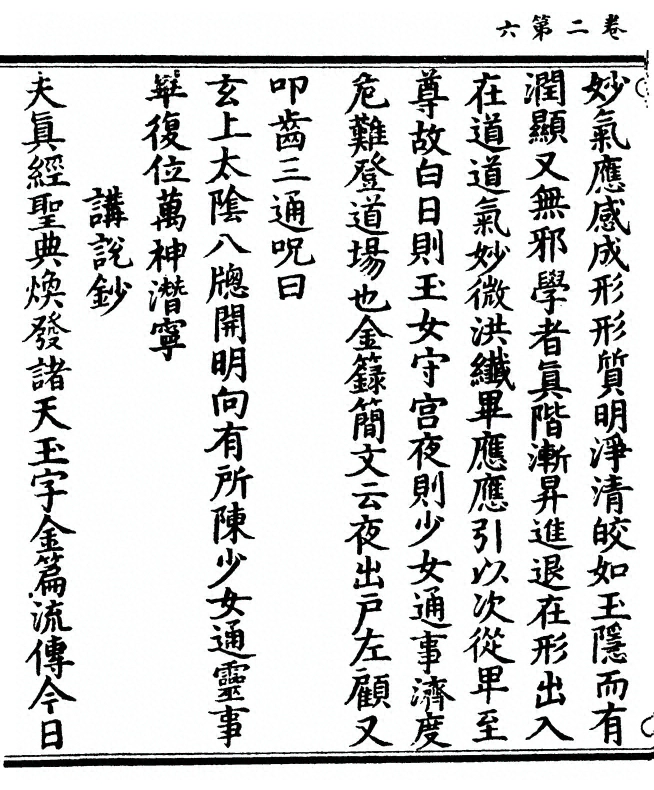 卷二第六
妙氣應感成形形質明淨清皎如玉隱而有
潤顯又無邪學者眞階漸昇進退在形出入
在道道氣妙微洪纖畢應應引以次從卑至
尊故白日則玉女守宮夜則少女通事濟度
危難登道場也金籙簡文云夜出戶左顧又
叩齒三通呪曰
玄上太陰八牕開明向有所陳少女通靈事
畢復位萬神潛寧
講說鈔
夫眞經聖典煥發諸天玉字金篇流傳今日